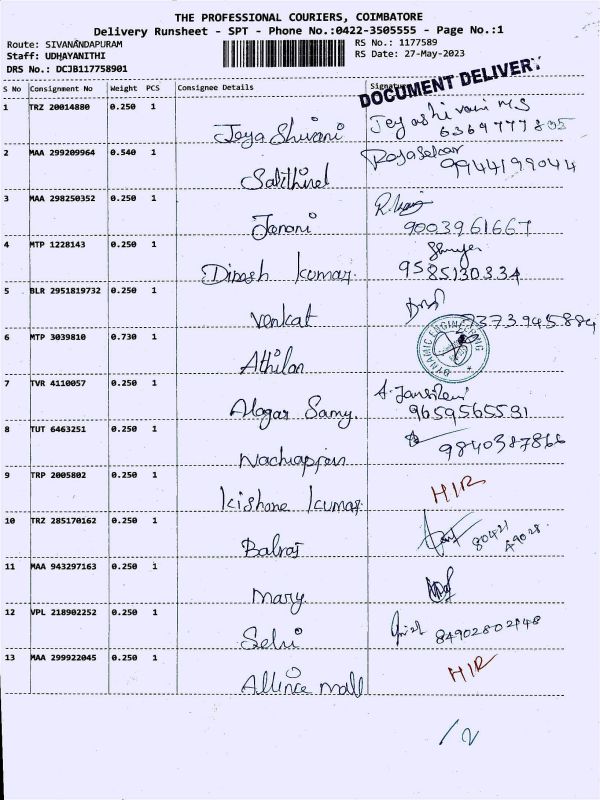 THE PROFESSIONAL COURIERS, COIMBATORE
Delivery Runsheet - SPT - Phone No.:0422-3505555 - Page No.:1
Route: SIVANANDAPURAM
RS No.: 1177589
Staff: UDHAYANITHI
RS Date: 27-May-2023
DRS No.: DCJB117758901
DOCUMENT DELIVERY
S No Consignment No Weight PCS Consignee Details Signature
1 TRZ 20014880 0.250 1
Jeya Shivani
6369777805
2 MAA 299209964 0.540 1
9944199044
3 MAA 298250352 0.250 1
Janani
9003961667
4 MTP 1228143 0.250 1
Dinesh kumar
9585130334
5 BLR 2951819732 0.250 1
Venkat
6 MTP 3039810 0.730 1
Athilan
DYNAMIC ENGINEERING
7 TVR 4110057 0.250 1
Alagar Samy
9659565591
8 TUT 6463251 0.250 1
9840387866
9 TRP 2005802 0.250 1
kishore kumar
HIR
10 TRZ 285170162 0.250 1
Balraj
11 MAA 943297163 0.250 1
Mary
12 VPL 218902252 0.250 1
Selvi
13 MAA 299922045 0.250 1
Allince mall
HIR